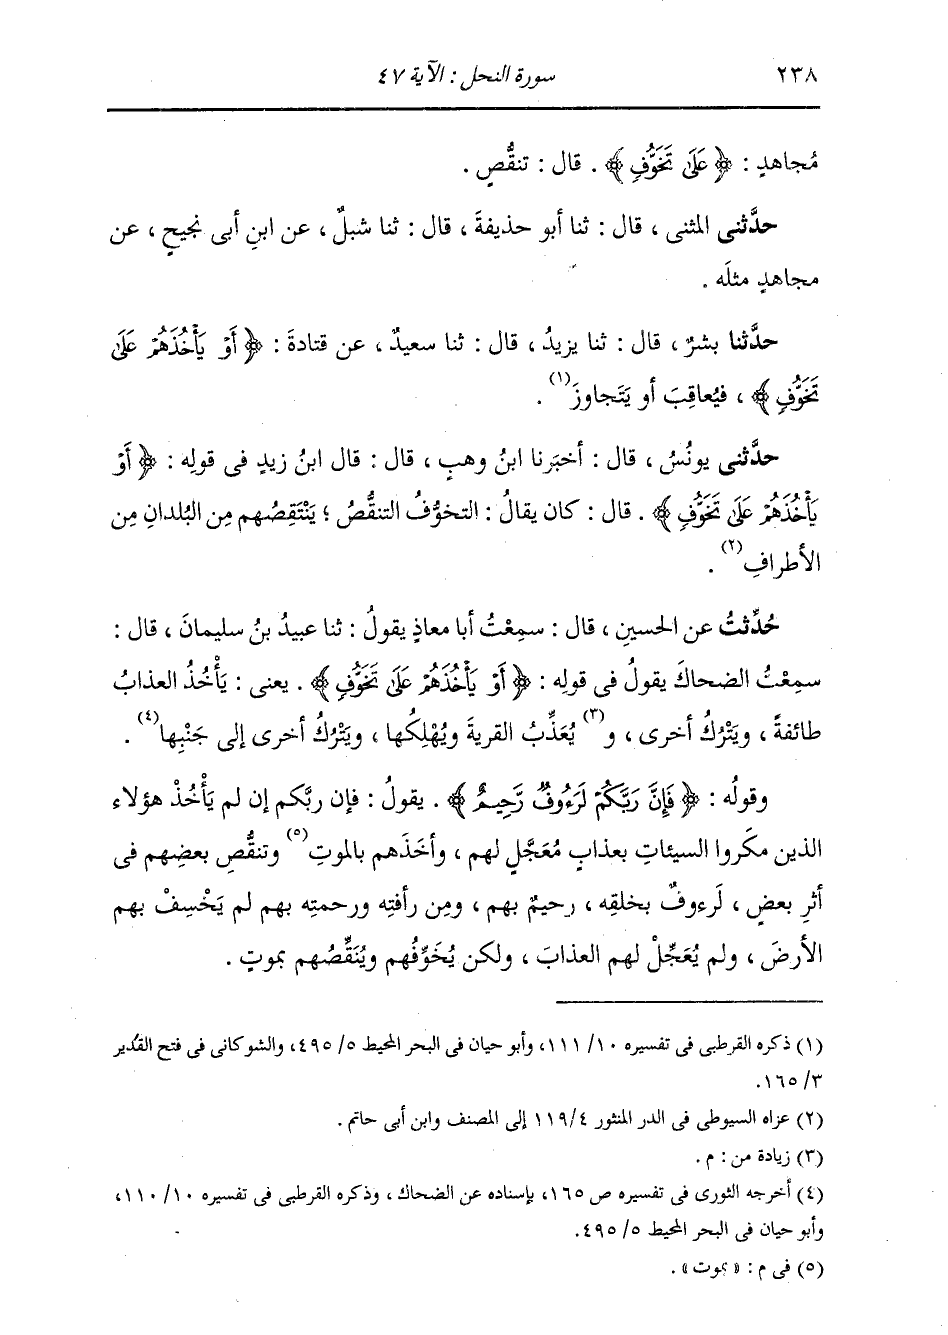 ٢٣٨ سورة النحل : الآية ٤٧
مُجاهدٍ : ﴿ عَلَىٰ تَخَوُّفٍ ﴾ . قال : تنقُّصٍ .
حدَّثنى المثنى ، قال : ثنا أبو حذيفةَ ، قال : ثنا شبلٌ ، عن ابنِ أبى نجيحٍ ، عن
مجاهدٍ مثلَه .
حدَّثنا بشرٌ ، قال : ثنا يزيدُ ، قال : ثنا سعيدٌ ، عن قتادةَ : ﴿ أَوْ يَأْخُذَهُمْ عَلَىٰ
تَخَوُّفٍ ﴾ ، فيُعاقِبَ أو يَتَجاوزَ(١) .
حدَّثنى يونُسُ ، قال : أخبَرنا ابنُ وهبٍ ، قال : قال ابنُ زيدٍ فى قولِه : ﴿ أَوْ
يَأْخُذَهُمْ عَلَىٰ تَخَوُّفٍ ﴾ . قال : كان يقالُ : التخوُّفُ التنقُّصُ ؛ يَنْتَقِصُهم مِن البُلدانِ مِن
الأطرافِ(٢) .
حُدِّثتُ عن الحسينِ ، قال : سمِعْتُ أبا معاذٍ يقولُ : ثنا عبيدُ بنُ سليمانَ ، قال :
سمِعْتُ الضحاكَ يقولُ فى قولِه : ﴿ أَوْ يَأْخُذَهُمْ عَلَىٰ تَخَوُّفٍ ﴾ . يعنى : يَأْخُذُ العذابُ
طائفةً ، ويَتْرُكُ أخرى ، و(٣) يُعَذِّبُ القريةَ ويُهْلِكُها ، ويَتْرُكُ أخرى إلى جَنْبِها(٤) .
وقولُه : ﴿ فَإِنَّ رَبَّكُمْ لَرَءُوفٌ رَّحِيمٌ ﴾ . يقولُ : فإن ربَّكم إن لم يَأْخُذْ هؤلاء
الذين مكَروا السيئاتِ بعذابٍ مُعَجَّلٍ لهم ، وأخَذَهم بالموتِ(٥) وتنقُّصِ بعضِهم فى
أثرِ بعضٍ ، لَرءوفٌ بخلقِه ، رحيمٌ بهم ، ومِن رأفتِه ورحمتِه بهم لم يَخْسِفْ بهم
الأرضَ ، ولم يُعَجِّلْ لهم العذابَ ، ولكن يُخَوِّفُهم ويُنَقِّصُهم بموتٍ .
(١) ذكره القرطبى فى تفسيره ١٠/ ١١١، وأبو حيان فى البحر المحيط ٥/ ٤٩٥، والشوكانى فى فتح القدير
٣/ ١٦٥.
(٢) عزاه السيوطى فى الدر المنثور ٤/ ١١٩ إلى المصنف وابن أبى حاتم .
(٣) زيادة من : م .
(٤) أخرجه الثورى فى تفسيره ص ١٦٥، بإسناده عن الضحاك ، وذكره القرطبى فى تفسيره ١٠/ ١١٠،
وأبو حيان فى البحر المحيط ٥/ ٤٩٥.
(٥) فى م : « بموت » .